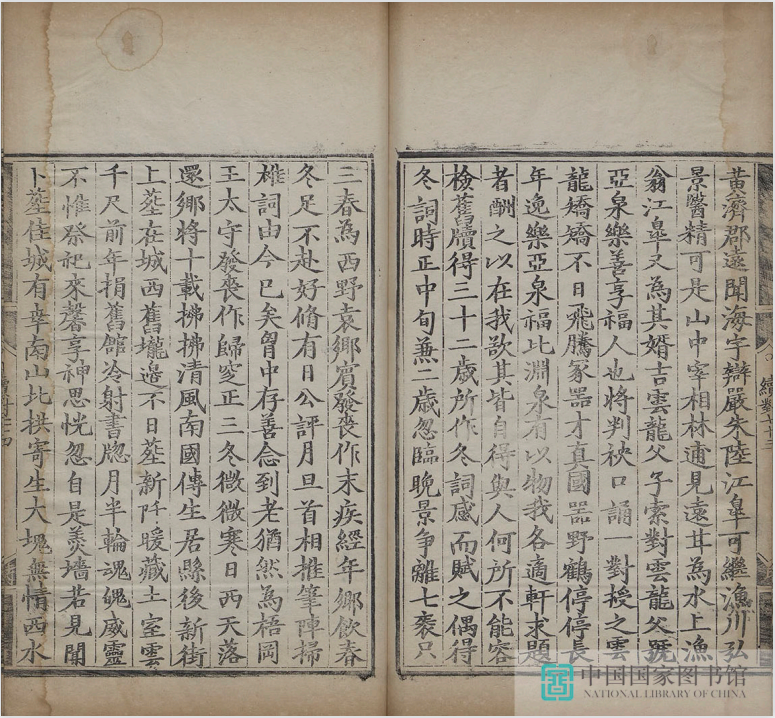 黃濟郡遠聞海宇辯嚴朱陸江皐可繼漁川弘
景醫精可是山中宰相林逋見遠甘為水上漁
翁江皐又為其婿吉雲龍父子索對雲龍父號
亞泉樂善享福人也將判袂口誦一對授之雲
龍矯矯不日飛騰冢器才真國器野鶴停停長
年逸樂亞泉福比淵泉有以物我各適軒求題
者酬之以在我欲其皆自得與人何所不能容
檢舊牘得三十二歲所作冬詞感而賦之偶得
冬詞時正中旬兼二歲忽臨晚景爭離七袠只
三春為西野袁鄉賓發喪作末疾經年鄉飲春
冬足不赴好脩有日公評月旦首相推筆陣掃
椎詞由今已矣胷中存善念到老猶然為梧岡
王太守發喪作歸窆正三冬微微寒日西天落
還鄉將十載拂拂清風南國傳生居縣後新街
上塟在城西舊壠邉不日塟新阡暖藏土室雲
千尺前年捐舊館冷射書牎月半輪魂魄威靈
不惟祭祀來馨享神思恍忽自是羹墻若見聞
卜塟佳城有幸南山北拱寄生大塊無情西水
續對十三
中国国家图书馆
NATIONAL LIBRARY OF CHINA